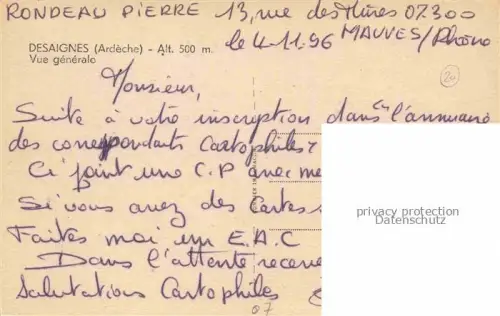 RONDEAU PIERRE 13, rue des Mûres 07300
le 4.11.96 MAUVES/Rhône
DESAIGNES (Ardèche) - Alt. 500 m.
Vue générale
20
Monsieur,
Suite à votre inscription dans l'annuaire
des correspondants Cartophiles
Ci joint une C.P avec me
Si vous avez des Cartes
Faites moi un E.A.C
Dans l'attente recevez
Salutations Cartophiles
07
privacy protection
Datenschutz